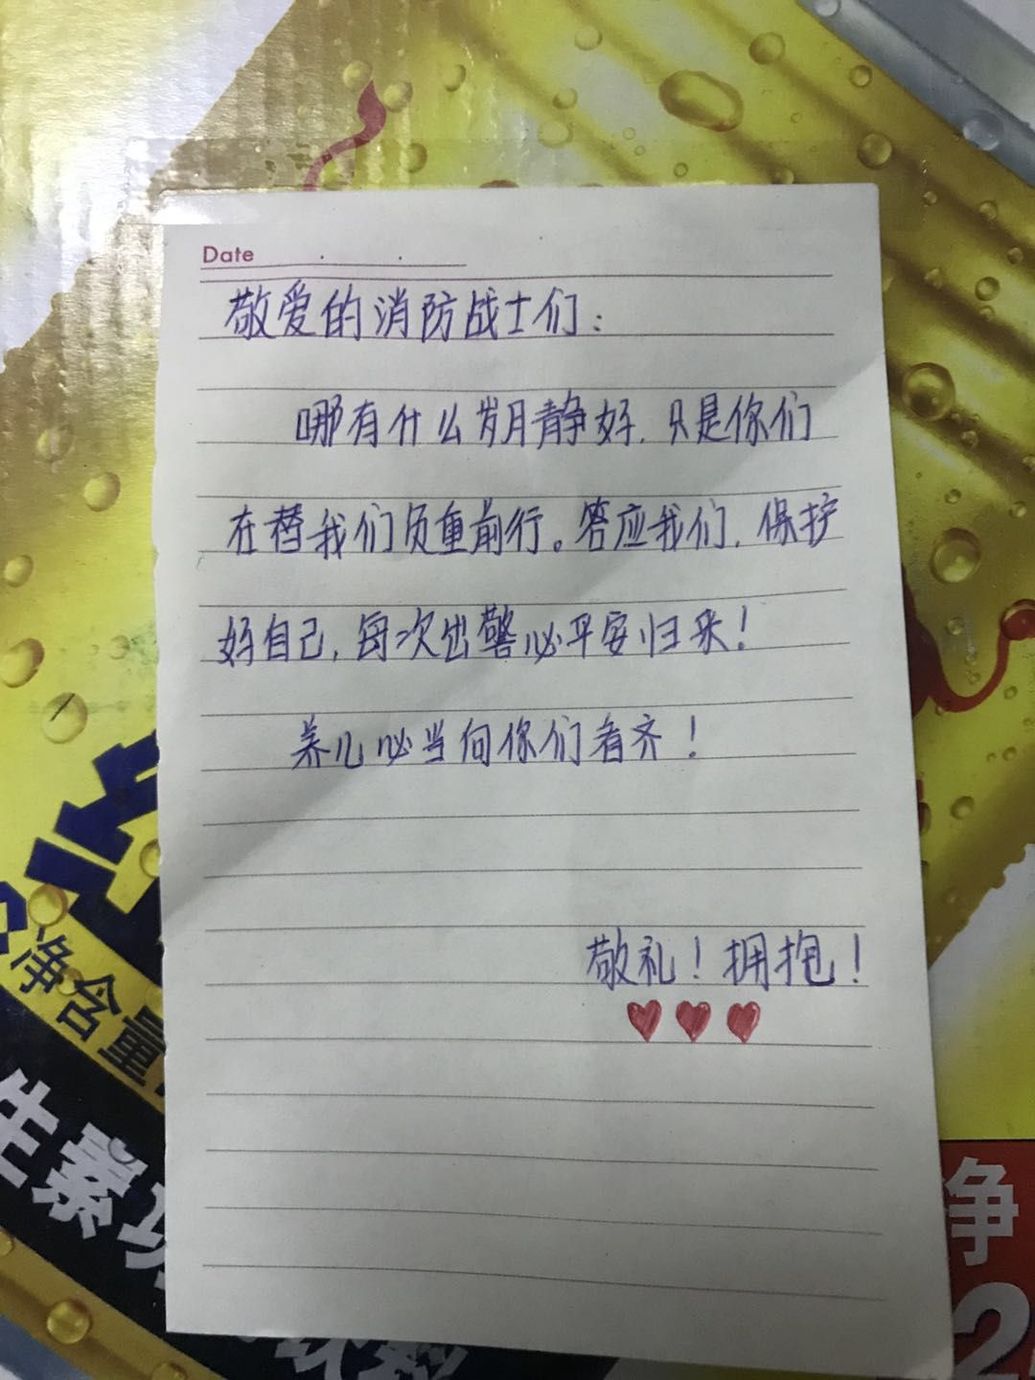 Date
敬爱的消防战士们:
哪有什么岁月静好,只是你们
在替我们负重前行。答应我们,保护
好自己,每次出警必平安归来!
养儿必当向你们看齐!
敬礼!拥抱!
净含量
生素功
饮料
净
2